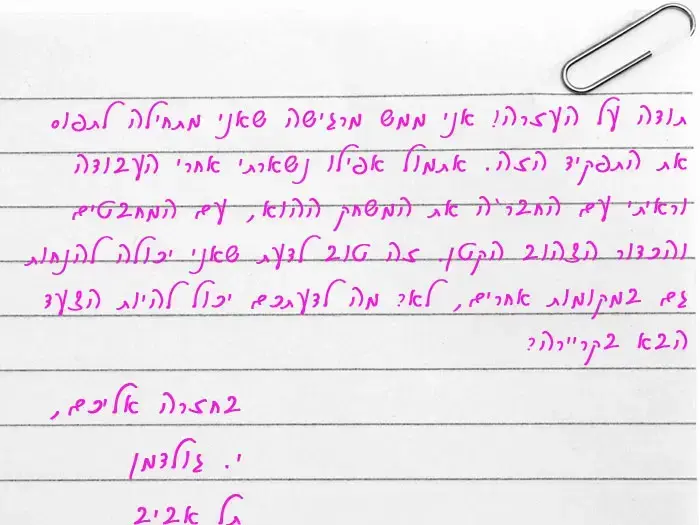 תודה על העזרה! אני ממש מרגישה שאני מתחילה לתפוס
את התפקיד הזה. אתמול אפילו נשארתי אחרי העבודה
וראיתי עם החבר'ה את המשחק ההוא, עם המחבטים
והכדור הצהוב הקטן. זה טוב לדעת שאני יכולה להנחות
גם במקומות אחרים, לא? מה לדעתכם יכול להיות הצעד
הבא בקריירה?
בחזרה אליכם,
י. גולדמן
תל אביב